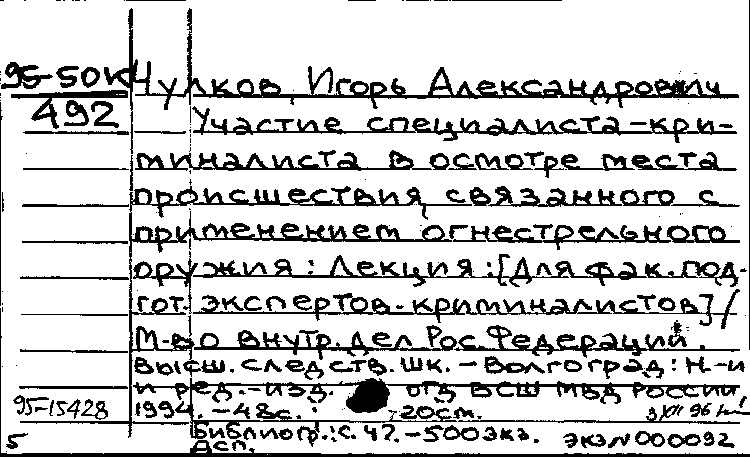 95-50К Чулков, Игорь Александрович
492 Участие специалиста-кри-
миналиста в осмотре места
происшествия, связанного с
применением огнестрельного
оружия: Лекция:[Для фак. под-
гот. экспертов-криминалистов]/
М-во внутр. дел Рос. Федерации.
Высш. следств. шк. - Волгоград: Н.-и
и ред.-изд. отд ВСШ МВД России,
95-15428 1994. -48с. : 20см. 3 XII 96
Библиогр.: с. 47. -500экз. экз N000092
5 Дсп.